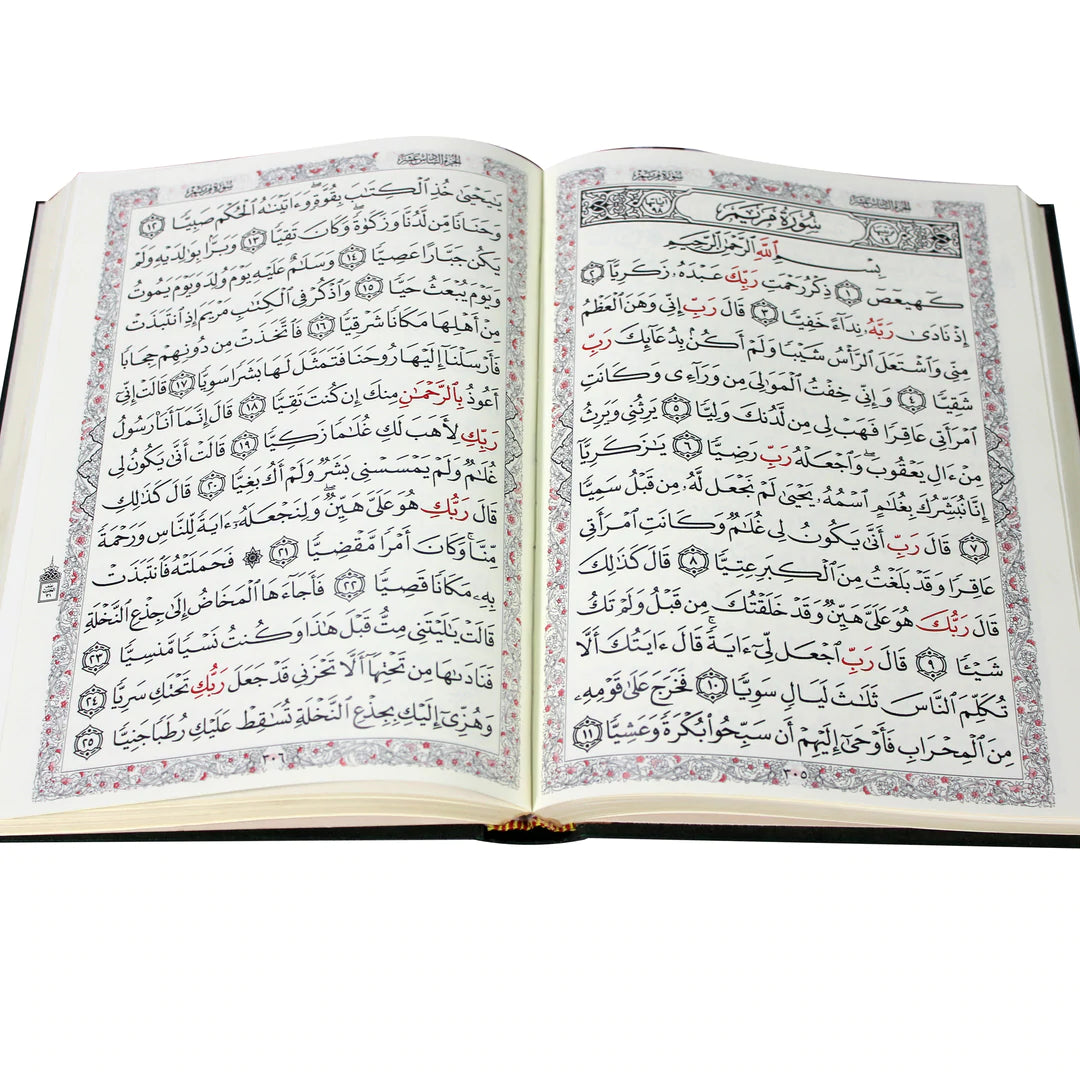 الجزء السادس عشر
سورة مريم
سُورَةُ مَرْيَمَ
آياتها ٩٨
ترتيبها ١٩
بِسْمِ ٱللَّهِ ٱلرَّحْمَٰنِ ٱلرَّحِيمِ
كٓهيعٓصٓ ١ ذِكْرُ رَحْمَتِ رَبِّكَ عَبْدَهُۥ زَكَرِيَّآ ٢
إِذْ نَادَىٰ رَبَّهُۥ نِدَآءً خَفِيًّا ٣ قَالَ رَبِّ إِنِّى وَهَنَ ٱلْعَظْمُ
مِنِّى وَٱشْتَعَلَ ٱلرَّأْسُ شَيْبًا وَلَمْ أَكُنۢ بِدُعَآئِكَ رَبِّ
شَقِيًّا ٤ وَإِنِّى خِفْتُ ٱلْمَوَٰلِىَ مِن وَرَآءِى وَكَانَتِ
ٱمْرَأَتِى عَاقِرًا فَهَبْ لِى مِن لَّدُنكَ وَلِيًّا ٥ يَرِثُنِى وَيَرِثُ
مِنْ ءَالِ يَعْقُوبَ ۖ وَٱجْعَلْهُ رَبِّ رَضِيًّا ٦ يَٰزَكَرِيَّآ
إِنَّا نُبَشِّرُكَ بِغُلَٰمٍ ٱسْمُهُۥ يَحْيَىٰ لَمْ نَجْعَل لَّهُۥ مِن قَبْلُ سَمِيًّا
٧ قَالَ رَبِّ أَنَّىٰ يَكُونُ لِى غُلَٰمٌ وَكَانَتِ ٱمْرَأَتِى
عَاقِرًا وَقَدْ بَلَغْتُ مِنَ ٱلْكِبَرِ عِتِيًّا ٨ قَالَ كَذَٰلِكَ
قَالَ رَبُّكَ هُوَ عَلَىَّ هَيِّنٌ وَقَدْ خَلَقْتُكَ مِن قَبْلُ وَلَمْ تَكُ
شَيْـًٔا ٩ قَالَ رَبِّ ٱجْعَل لِّىٓ ءَايَةً ۚ قَالَ ءَايَتُكَ أَلَّا
تُكَلِّمَ ٱلنَّاسَ ثَلَٰثَ لَيَالٍ سَوِيًّا ١٠ فَخَرَجَ عَلَىٰ قَوْمِهِۦ
مِنَ ٱلْمِحْرَابِ فَأَوْحَىٰٓ إِلَيْهِمْ أَن سَبِّحُوا۟ بُكْرَةً وَعَشِيًّا ١١
٣٠٥
الجزء السادس عشر
سورة مريم
يَٰيَحْيَىٰ خُذِ ٱلْكِتَٰبَ بِقُوَّةٍ ۖ وَءَاتَيْنَٰهُ ٱلْحُكْمَ صَبِيًّا ١٢
وَحَنَانًا مِّن لَّدُنَّا وَزَكَوٰةً ۖ وَكَانَ تَقِيًّا ١٣ وَبَرًّۢا بِوَٰلِدَيْهِ وَلَمْ
يَكُن جَبَّارًا عَصِيًّا ١٤ وَسَلَٰمٌ عَلَيْهِ يَوْمَ وُلِدَ وَيَوْمَ يَمُوتُ
وَيَوْمَ يُبْعَثُ حَيًّا ١٥ وَٱذْكُرْ فِى ٱلْكِتَٰبِ مَرْيَمَ إِذِ ٱنتَبَذَتْ
مِنْ أَهْلِهَا مَكَانًا شَرْقِيًّا ١٦ فَٱتَّخَذَتْ مِن دُونِهِمْ حِجَابًا
فَأَرْسَلْنَآ إِلَيْهَا رُوحَنَا فَتَمَثَّلَ لَهَا بَشَرًا سَوِيًّا ١٧ قَالَتْ إِنِّىٓ
أَعُوذُ بِٱلرَّحْمَٰنِ مِنكَ إِن كُنتَ تَقِيًّا ١٨ قَالَ إِنَّمَآ أَنَا۠ رَسُولُ
رَبِّكِ لِأَهَبَ لَكِ غُلَٰمًا زَكِيًّا ١٩ قَالَتْ أَنَّىٰ يَكُونُ لِى
غُلَٰمٌ وَلَمْ يَمْسَسْنِى بَشَرٌ وَلَمْ أَكُ بَغِيًّا ٢٠ قَالَ كَذَٰلِكِ
قَالَ رَبُّكِ هُوَ عَلَىَّ هَيِّنٌ ۖ وَلِنَجْعَلَهُۥٓ ءَايَةً لِّلنَّاسِ وَرَحْمَةً
مِّنَّا ۚ وَكَانَ أَمْرًا مَّقْضِيًّا ٢١ ۞ فَحَمَلَتْهُ فَٱنتَبَذَتْ
بِهِۦ مَكَانًا قَصِيًّا ٢٢ فَأَجَآءَهَا ٱلْمَخَاضُ إِلَىٰ جِذْعِ ٱلنَّخْلَةِ
قَالَتْ يَٰلَيْتَنِى مِتُّ قَبْلَ هَٰذَا وَكُنتُ نَسْيًا مَّنسِيًّا ٢٣
فَنَادَىٰهَا مِن تَحْتِهَآ أَلَّا تَحْزَنِى قَدْ جَعَلَ رَبُّكِ تَحْتَكِ سَرِيًّا ٢٤
وَهُزِّىٓ إِلَيْكِ بِجِذْعِ ٱلنَّخْلَةِ تُسَٰقِطْ عَلَيْكِ رُطَبًا جَنِيًّا ٢٥
٣٠٦